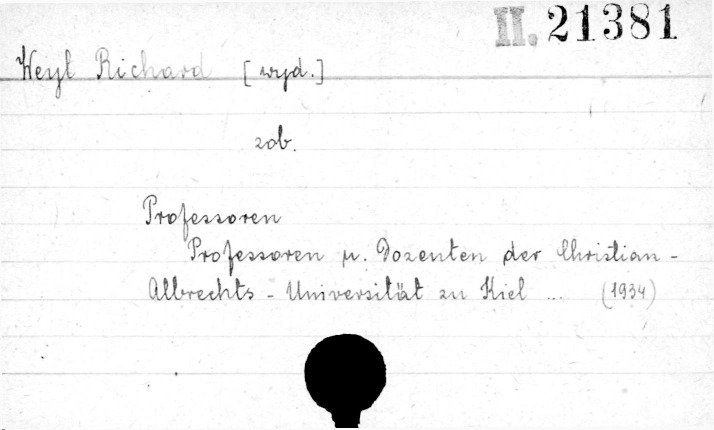 II. 21381
Weyl Richard [wyd.]
zob.
Professoren
Professoren u. Dozenten der Christian-
Albrechts - Universität zu Kiel ... (1934)